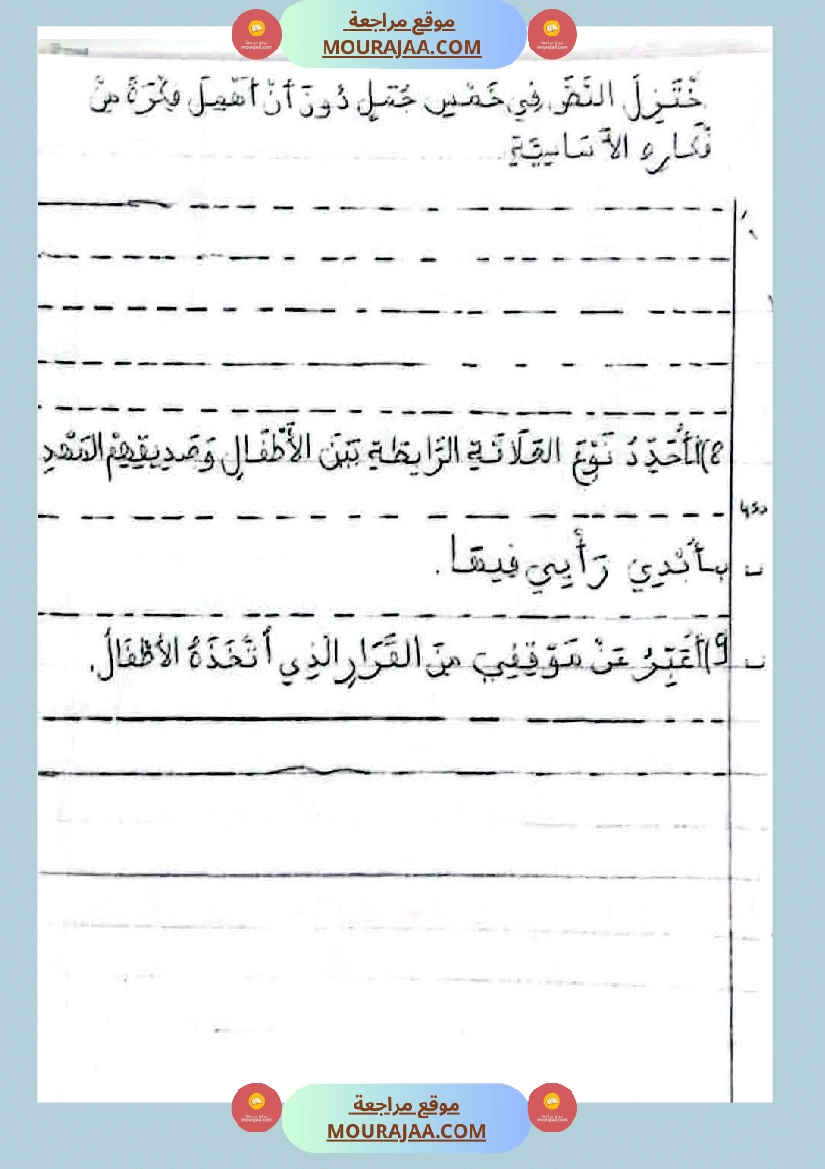 موقع مراجعة
MOURAJAA.COM
خْتَزِلَ النَّصَّ فِي خَمْسِ جُمَلٍ دُونَ أَنْ أُهْمِلَ فِكْرَةً مِنْ
فْكَارِهِ الأَسَاسِيَّةِ
8) أ أُحَدِّدُ نَوْعَ العَلَاقَةِ الرَّابِطَةِ بَيْنَ الأَطْفَالِ وَصَدِيقِهِمْ
ب أُبْدِي رَأْيِي فِيهَا.
9) أُعَبِّرُ عَنْ مَوْقِفِي مِنَ القَرَارِ الَّذِي اتَّخَذَهُ الأَطْفَالُ.
موقع مراجعة
MOURAJAA.COM